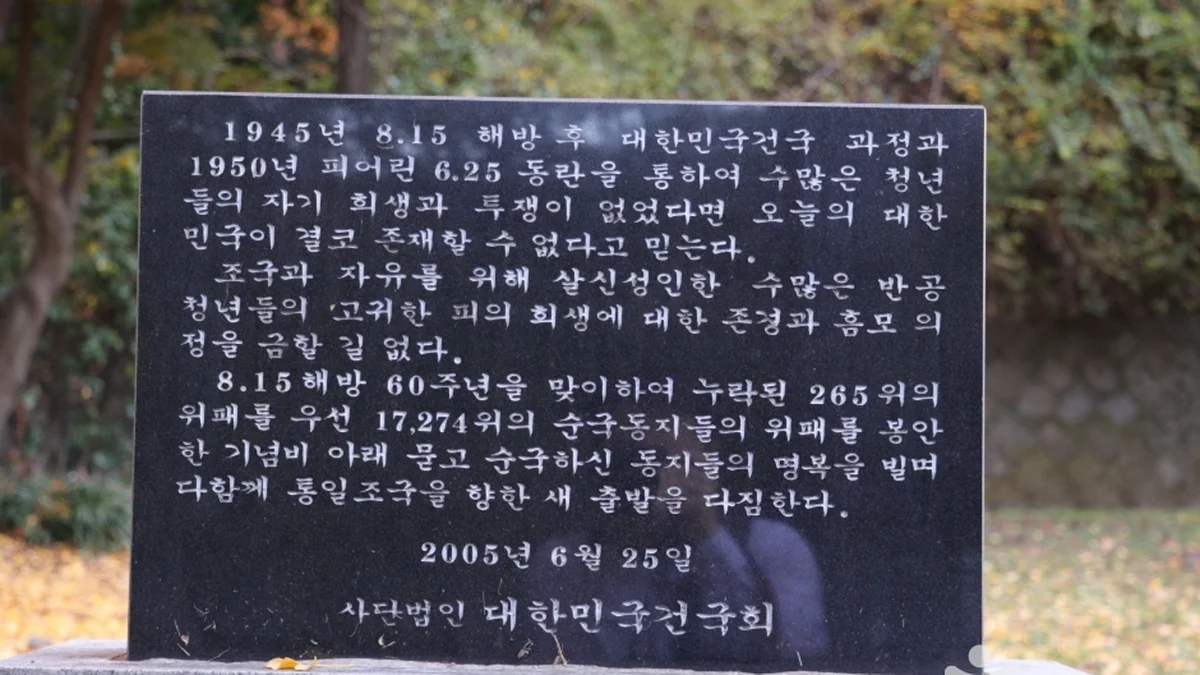 1945년 8.15 해방 후 대한민국건국 과정과
1950년 피어린 6.25 동란을 통하여 수많은 청년
들의 자기 희생과 투쟁이 없었다면 오늘의 대한
민국이 결코 존재할 수 없다고 믿는다.
조국과 자유를 위해 살신성인한 수많은 반공
청년들의 고귀한 피의 희생에 대한 존경과 흠모의
정을 금할 길 없다.
8.15해방 60주년을 맞이하여 누락된 265위의
위패를 우선 17,274위의 순국동지들의 위패를 봉안
한 기념비 아래 묻고 순국하신 동지들의 명복을 빌며
다함께 통일조국을 향한 새 출발을 다짐한다.
2005년 6월 25일
사단법인 대한민국건국회